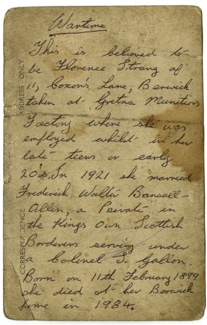 Wartime
This is believed to
be Florence Strang of
11, Coxon's Lane, Berwick
taken at Gretna Munitions
Factory where she was
employed whilst in her
late teens or early
20s. In 1921 she married
Frederick Walter Bansall-
Allen, a Private in
the Kings Own Scottish
Borderers serving under
a Colonel J. Galion.
Born on 11th February 1899
she died at her Berwick
home in 1984.
ADDRESS ONLY
CORRESPONDENCE